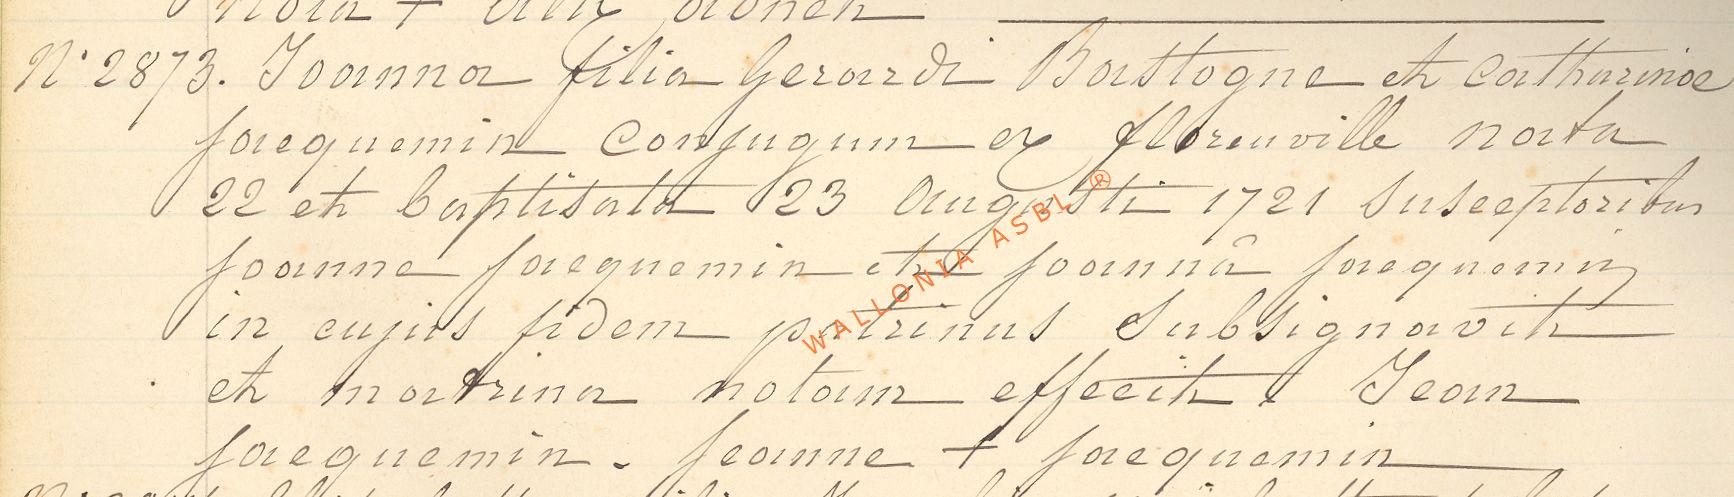 nota + Alix
N° 2873. Joanna filia Gerardi Bastogne et Catharinae
jacquemin conjugum ex florenville nata
22 et baptisata 23 Augusti 1721 Susceptoribus
joanne jacquemin et joannâ jacquemin
in cujus fidem patrinus Subsignavit
et matrina notam effecit. Jean
jacquemin. jeanne + jacquemin
WALLONIA ASBL ®